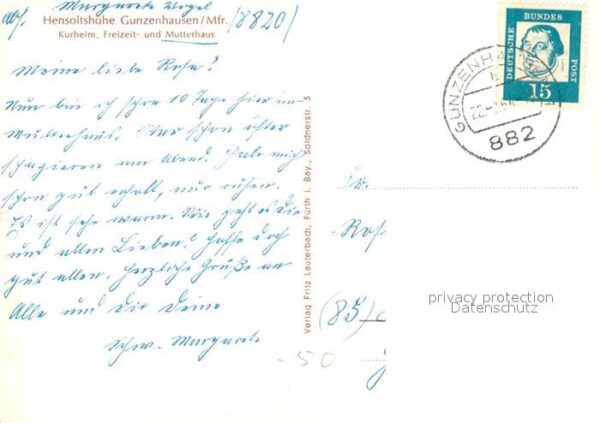 Abs. Margarete
(8820)
Hensoltshöhe Gunzenhausen/Mfr.
Kurheim, Freizeit- und Mutterhaus
Meine liebe Rosa!
Nun bin ich schon 10 Tage hier im
Mutterhaus. War schon öfter
spazieren am Abend. Habe mich
schon gut erholt, nur ruhen.
Es ist sehr warm. Wie geht es Dir
und allen Lieben? Hoffe doch
gut allen. Herzliche Grüße an
Alle und Dir Deine
Schw. Margarete
Verlag Fritz Lauterbach, Fürth i. Bay., Soldnerstr. 3
DEUTSCHE BUNDES POST
15
GUNZENHA
882
Fr.
Ros
(85)
-50
privacy protection
Datenschutz